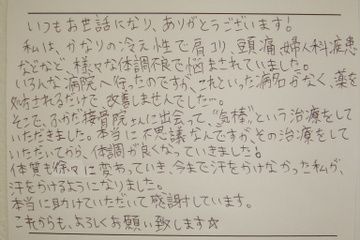 いつもお世話になり、ありがとうございます!
私は、かなりの冷え性で肩コリ、頭痛、婦人科疾患
などなど、様々な体調不良で悩まされていました。
いろんな病院へ行ったのですが、これといった病名がなく、薬を
処方されるだけで、改善しませんでした…
そこで、ふかだ接骨院さんに出会って、“気楱”という治療をして
いただきました。本当に不思議なんですが、その治療をして
いただいてから、体調が良くなっていきました!
体質も徐々に変わっていき、今まで汗をかけなかった私が、
汗をかけるようになりました。
本当に助けていただいて感謝しています。
これからも、よろしくお願い致します☆